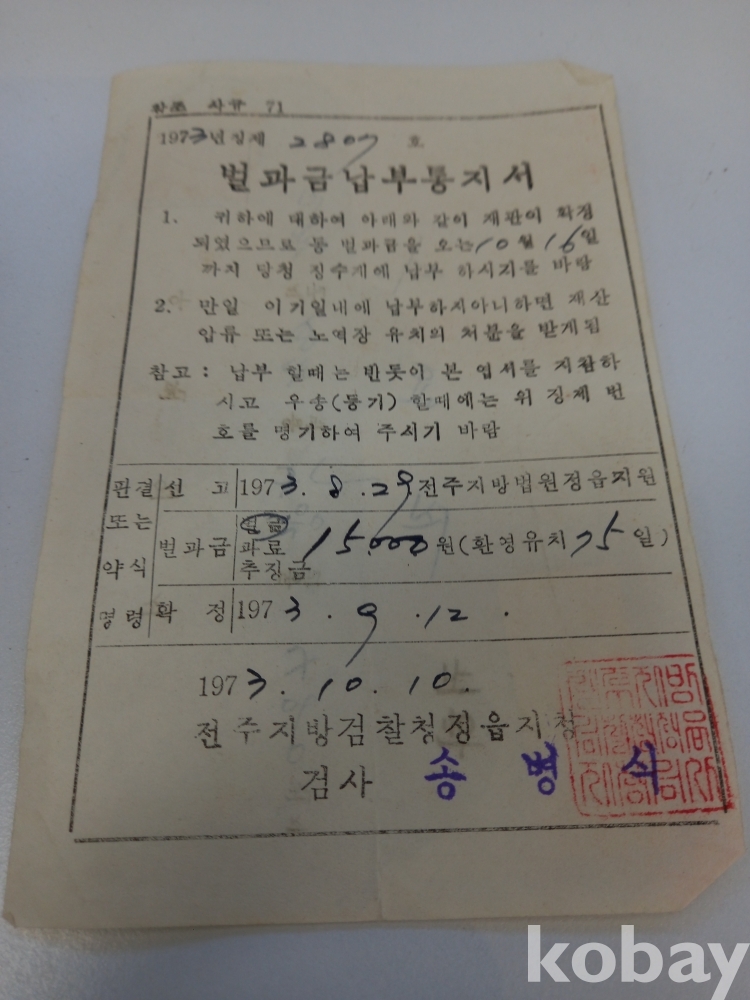 사규 71
1973년징제 2807 호
벌과금납부통지서
1. 귀하에 대하여 아래와 같이 재판이 확정
되었으므로 동 벌과금을 오는 10월 16일
까지 당청 징수계에 납부 하시기를 바람
2. 만일 이기일내에 납부하지아니하면 재산
압류 또는 노역장 유치의 처분을 받게됨
참고 : 납부 할때는 반듯이 본 엽서를 지참하
시고 우송(통기) 할때에는 위 징제 번
호를 명기하여 주시기 바람
판결 또는 약식 명령
선고 1973. 8. 29. 전주지방법원정읍지원
벌과금 벌금 과료 추징금 15,000원(환형유치 75일)
확정 1973. 9. 12.
1973. 10. 10.
전주지방검찰청정읍지청
검사 송병식
kobay